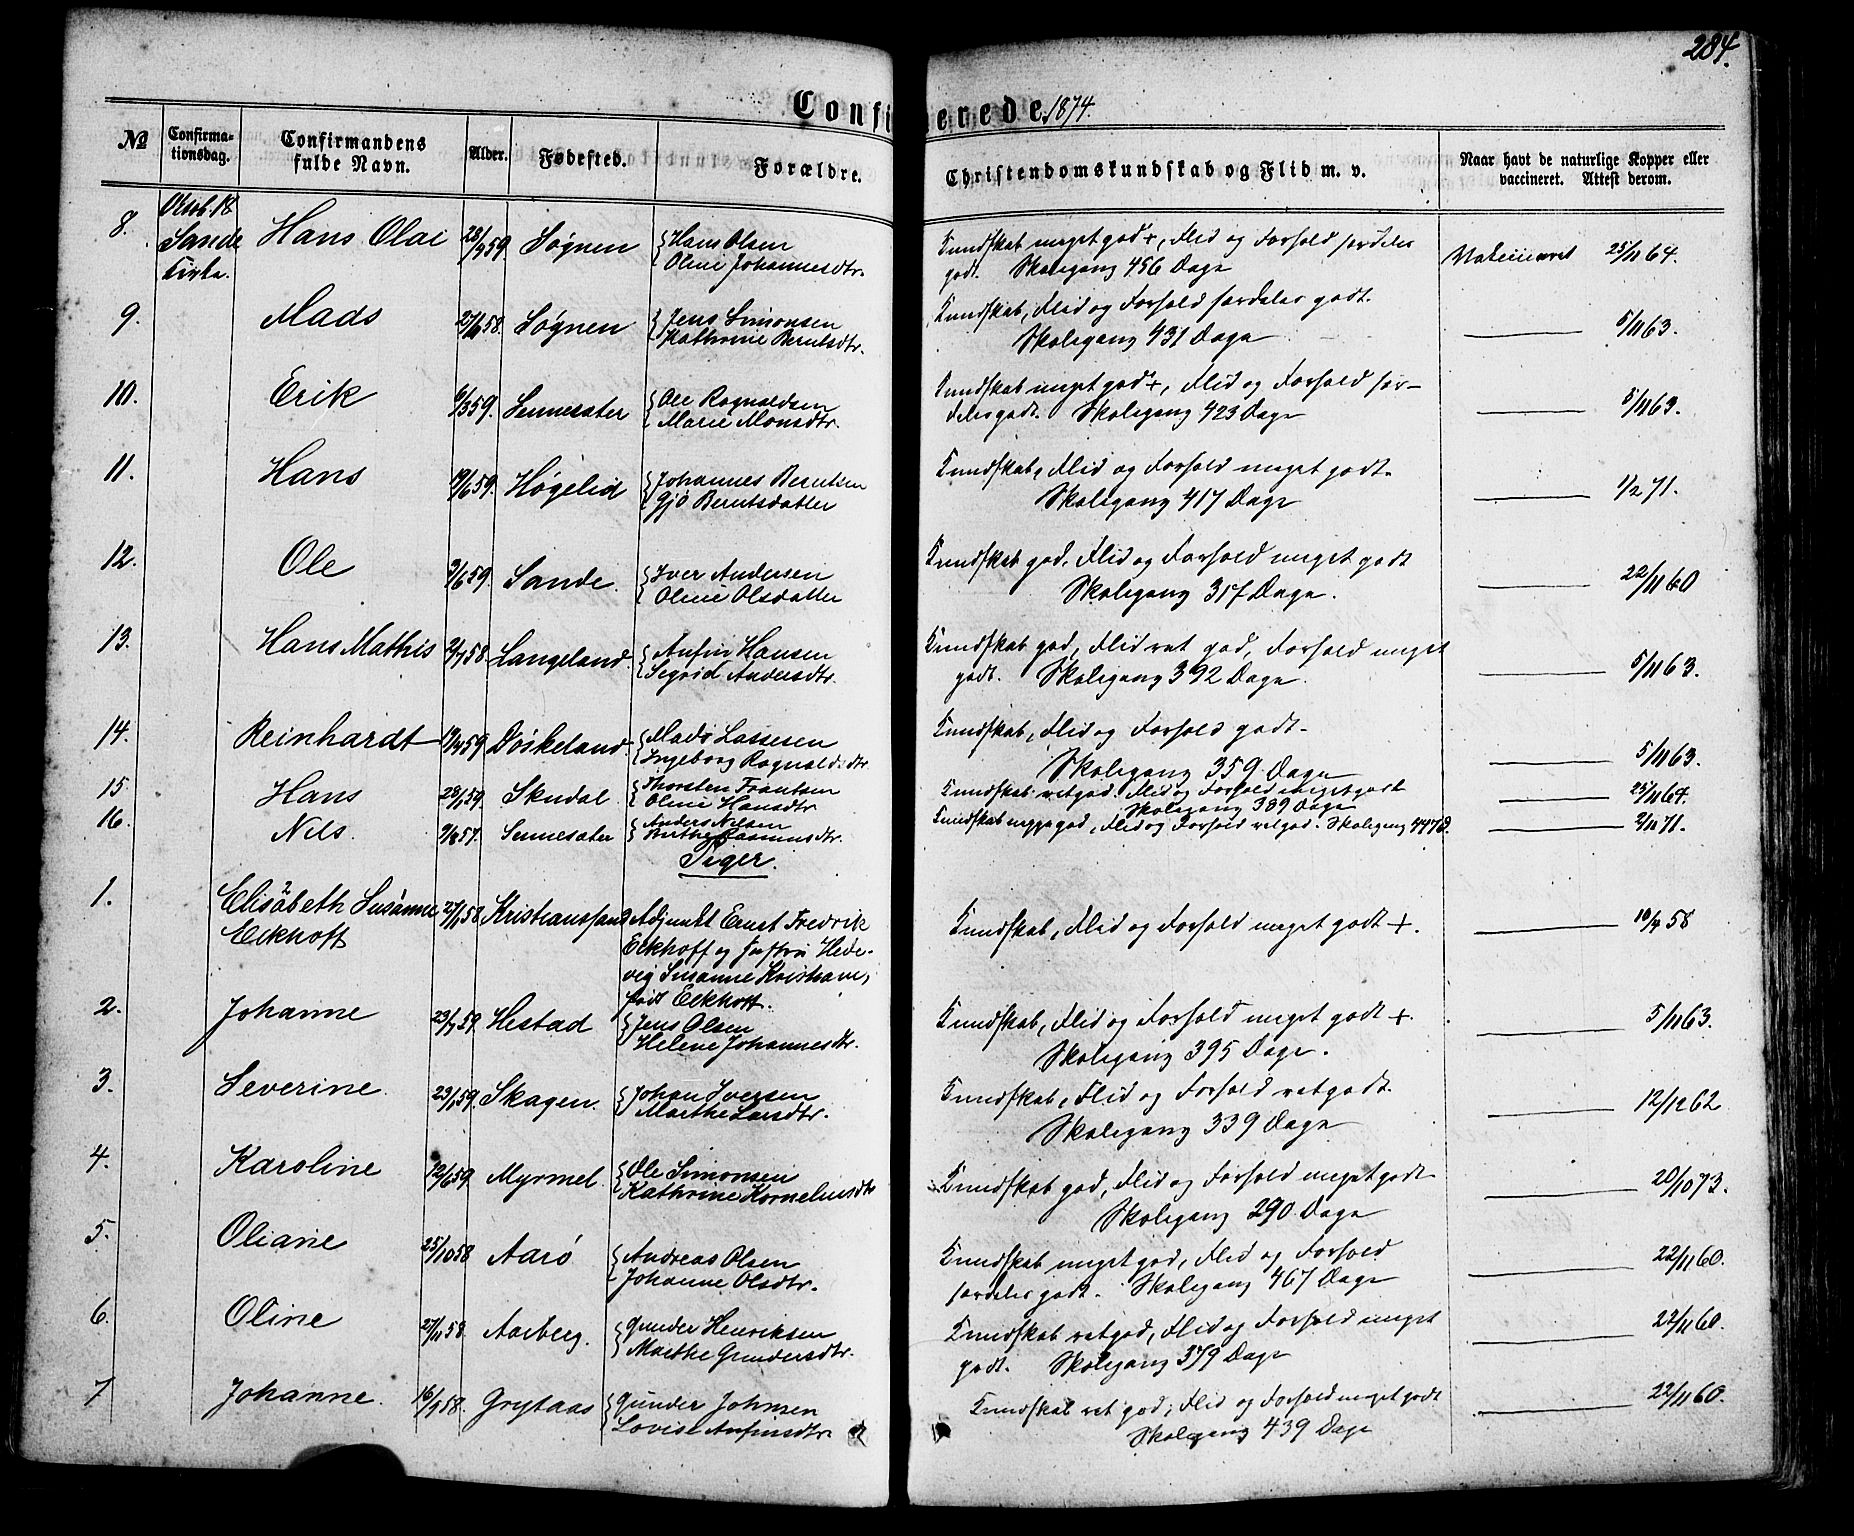 284.
Confirmerede 1874.
№ Confirma-tionsdag. Confirmandens fulde Navn. Alder. Fødested. Forældre. Christendomskundskab og Flid m. v. Naar havt de naturlige Kopper eller vaccineret. Attest derom.
Sande Kirke.
8. Hans Olai 59. Søgnen Hans Olsen Kundskab meget god+, Flid og Forhold særdeles
Oline Johannesdtr. godt. Skolegang 456 Dage 25/11 64.
9. Mads 58. Søgnen Jens Simonsen Kundskab, Flid og Forhold særdeles godt.
Kathrine Berntsdtr. Skolegang 431 Dage 5/11 63.
10. Erik 6/3 59. Sennesæter Ole Rognaldsen Kundskab meget god+, Flid og Forhold sær-
Marie Monsdtr. deles godt. Skolegang 423 Dage 5/11 63.
11. Hans 19/6 59. Høgelid Johannes Berntsen Kundskab, Flid og Forhold meget godt.
Gjø Berntsdatter Skolegang 417 Dage 1/2 71.
12. Ole 9/6 59. Sande. Iver Andersen Kundskab god, Flid og Forhold meget godt
Oline Olsdatter Skolegang 317 Dage. 22/11 60
13. Hans Mathis 2/7 58. Langeland. Anfin Hansen Kundskab god, Flid ret god, Forhold meget
Sigrid Andersdtr. godt. Skolegang 392 Dage. 5/11 63.
14. Reinhardt 59. Døskeland. Mads Lassesen Kundskab, Flid og Forhold godt.
Ingeborg Rognaldsdtr. Skolegang 359 Dage 5/11 63.
15. Hans 28/1 59. Skudal Thorsten Frantsen Kundskab ret god. Flid og Forhold meget godt
Oline Hansdtr Skolegang 389 Dage 25/11 64.
16. Nils. 57. Sennesæter Anders Nilsen Kundskab god, Flid og Forhold ret god. Skolegang 447 D. 2/10 71.
Birthe Rasmusdtr.
Piger.
1. Elisabeth Susanne 58. Kristianssand Adjunkt Ernst Fredrik Kundskab, Flid og Forhold meget godt +. 58
Eckhoff Eckhoff og Hustru Hede-
vig Susanne Kristiane,
født Eckhoff.
2. Johanne 23/1 59. Hestad Jens Olsen Kundskab, Flid og Forhold meget godt +.
Helene Johannesdtr. Skolegang 395 Dage. 5/11 63.
3. Severine 23/1 59. Skagen. Johan Iversen Kundskab, Flid og Forhold ret godt.
Marthe Larsdtr. Skolegang 339 Dage 12/12 62
4. Karoline 12/6 59. Myrmel. Ole Simonsen Kundskab god, Flid og Forhold meget godt
Kathrine Korneliusdtr Skolegang 290 Dage 20/10 73.
5. Oliane 25/10 58 Aarø Andreas Olsen Kundskab meget god, Flid og Forhold
Johanne Olsdtr. særdeles godt. Skolegang 467 Dage 22/11 60.
6. Oline 27/11 58. Aarberg. Gunder Henriksen Kundskab ret god, Flid og Forhold meget
Marthe Gundersdtr. godt. Skolegang 379 Dage 22/11 60.
7 Johanne. 58. Grytaas Gunder Johnsen Kundskab ret god, Flid og Forhold meget godt
Lovise Anfinsdtr. Skolegang 439 Dage 22/11 60.